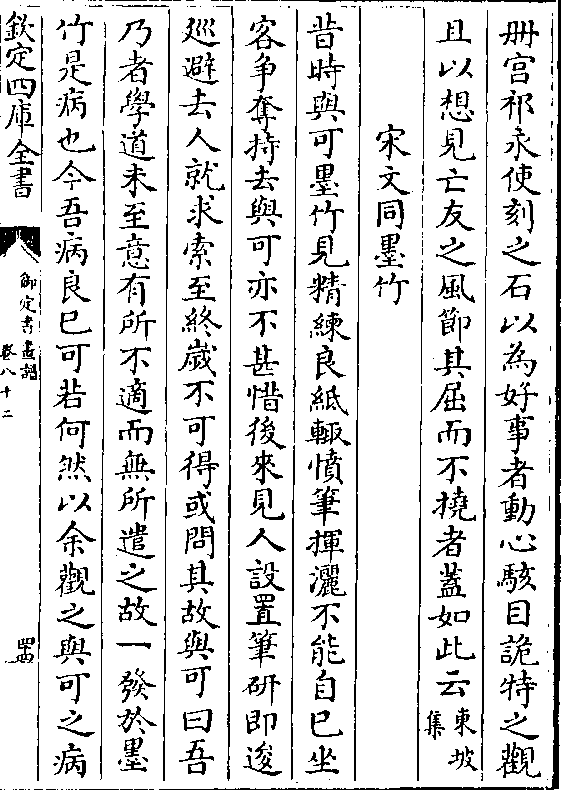 册宫祁永使刻之石以為好事者動心駭目詭特之觀
且以想見亡友之風節其屈而不撓者蓋如此云東坡集
宋文同墨竹
昔時與可墨竹見精練良紙輙憤筆揮灑不能自已坐
客争奪持去與可亦不甚惜後來見人設置筆研即逡
廵避去人就求索至終嵗不可得或問其故與可曰吾
乃者學道未至意有所不適而無所遣之故一發於墨
竹是病也今吾病良已可若何然以余觀之與可之病
欽定四庫全書
御定書畫譜
卷八十二
四